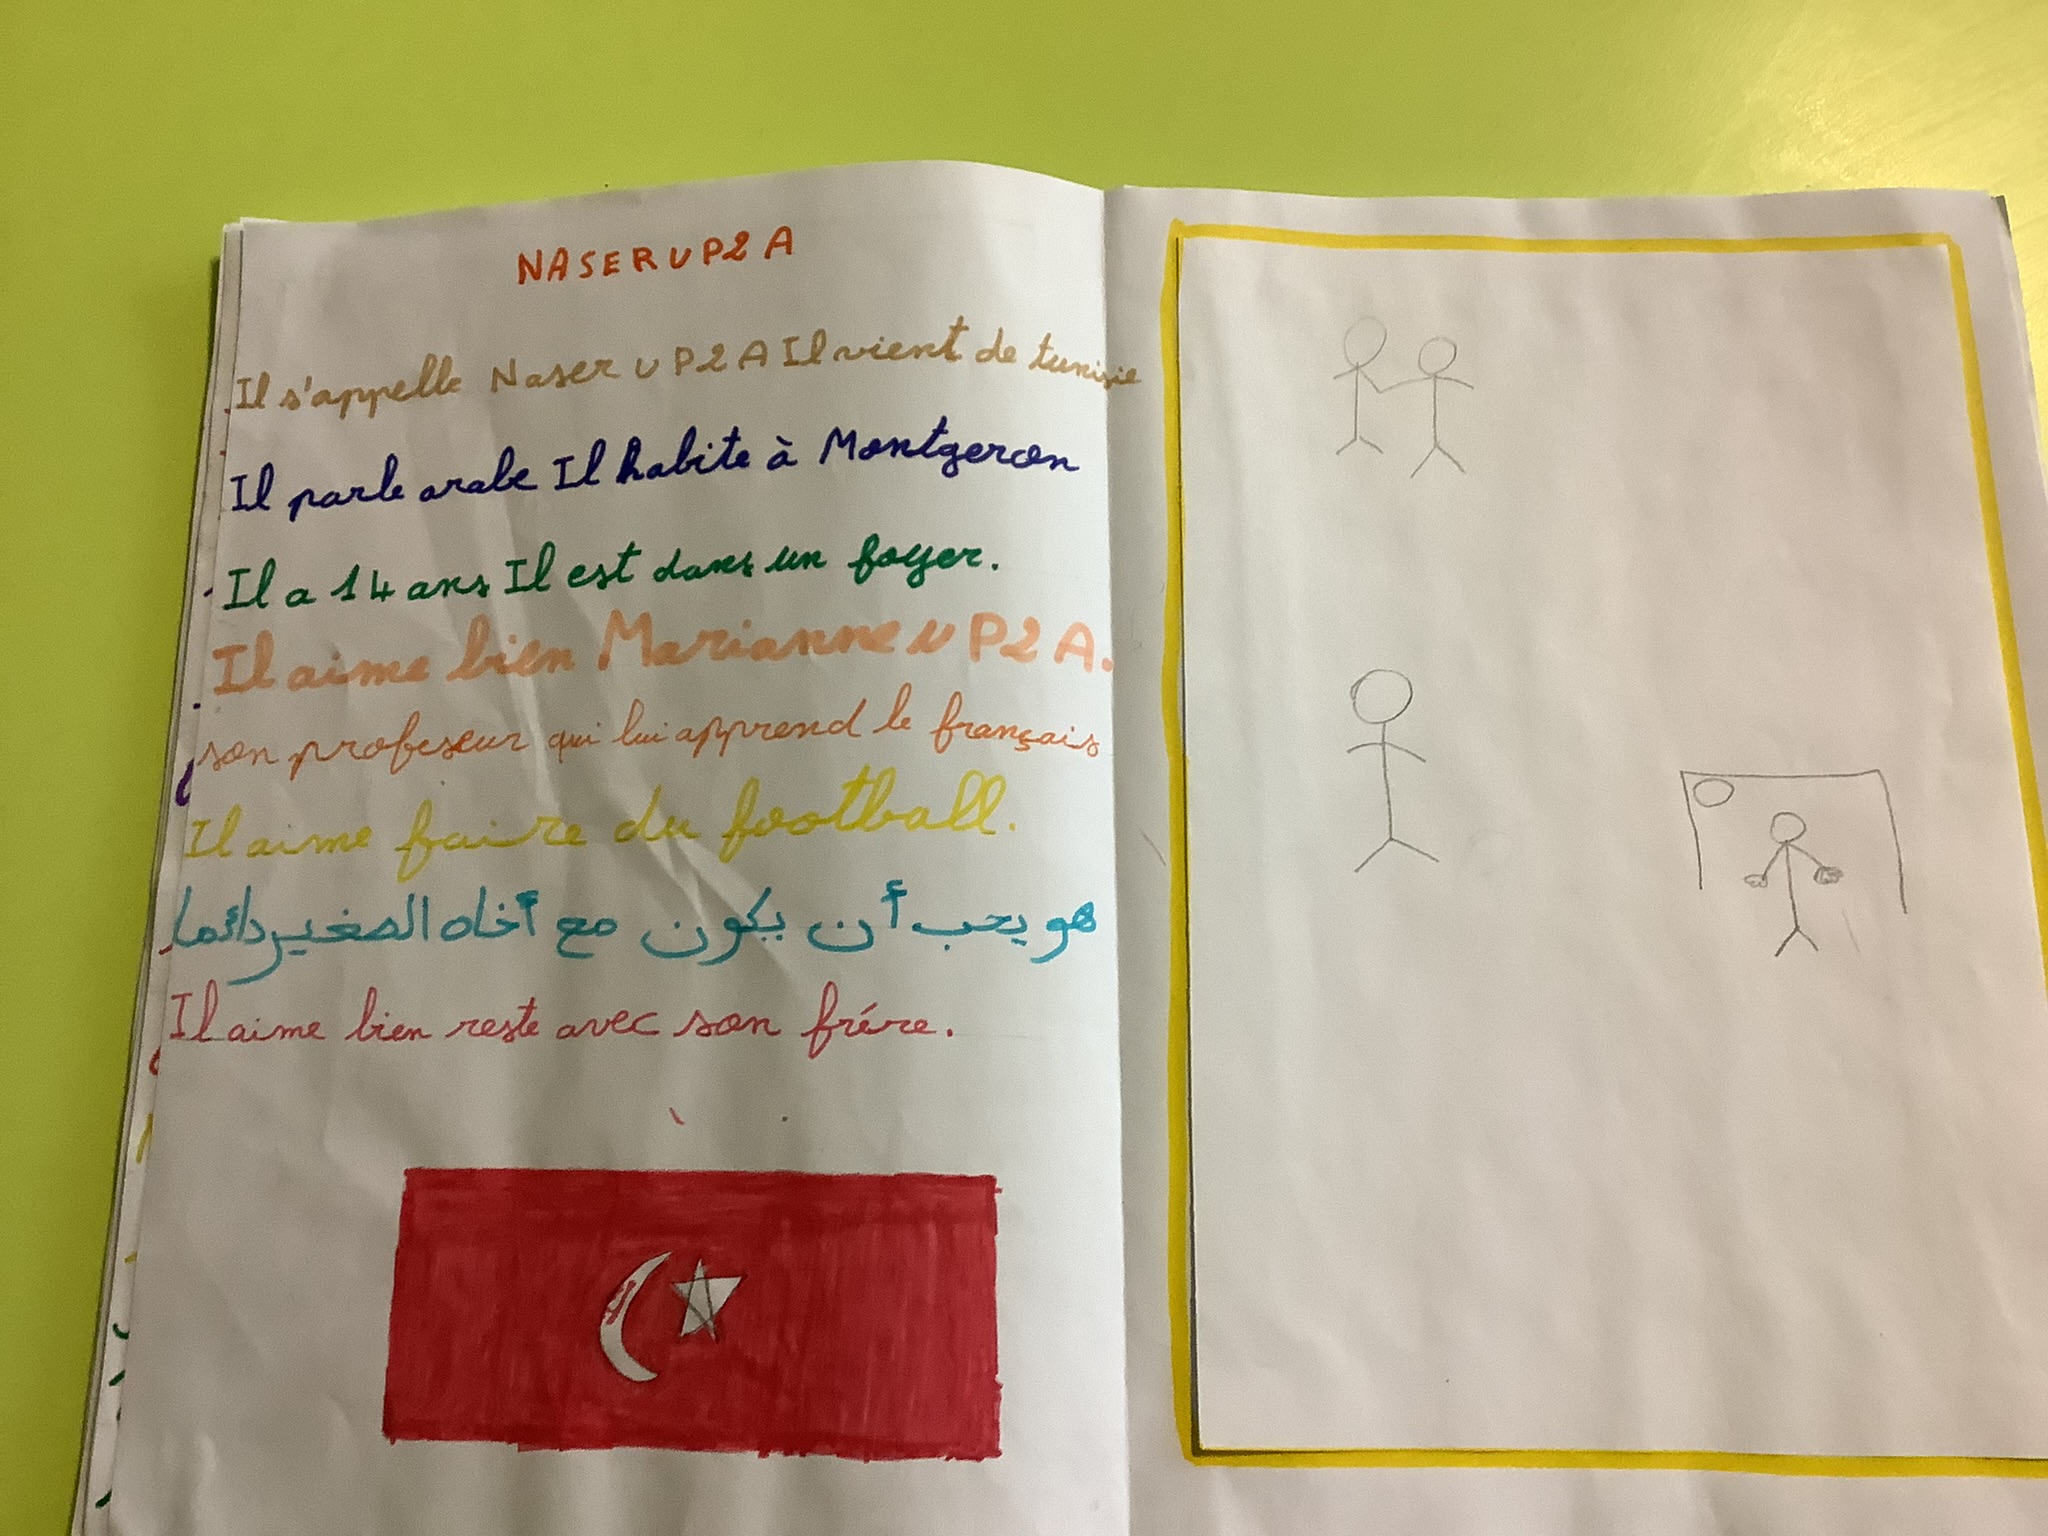 NASER UP2A
Il s'appelle Naser UP2A Il vient de tunisie
Il parle arabe Il habite à Montgeron
Il a 14 ans Il est dans un foyer.
Il aime bien Marianne UP2A.
son profeseur qui lui apprend le français
Il aime faire du football.
هو يحب أن يكون مع أخاه الصغير دائما
Il aime bien reste avec son frére.